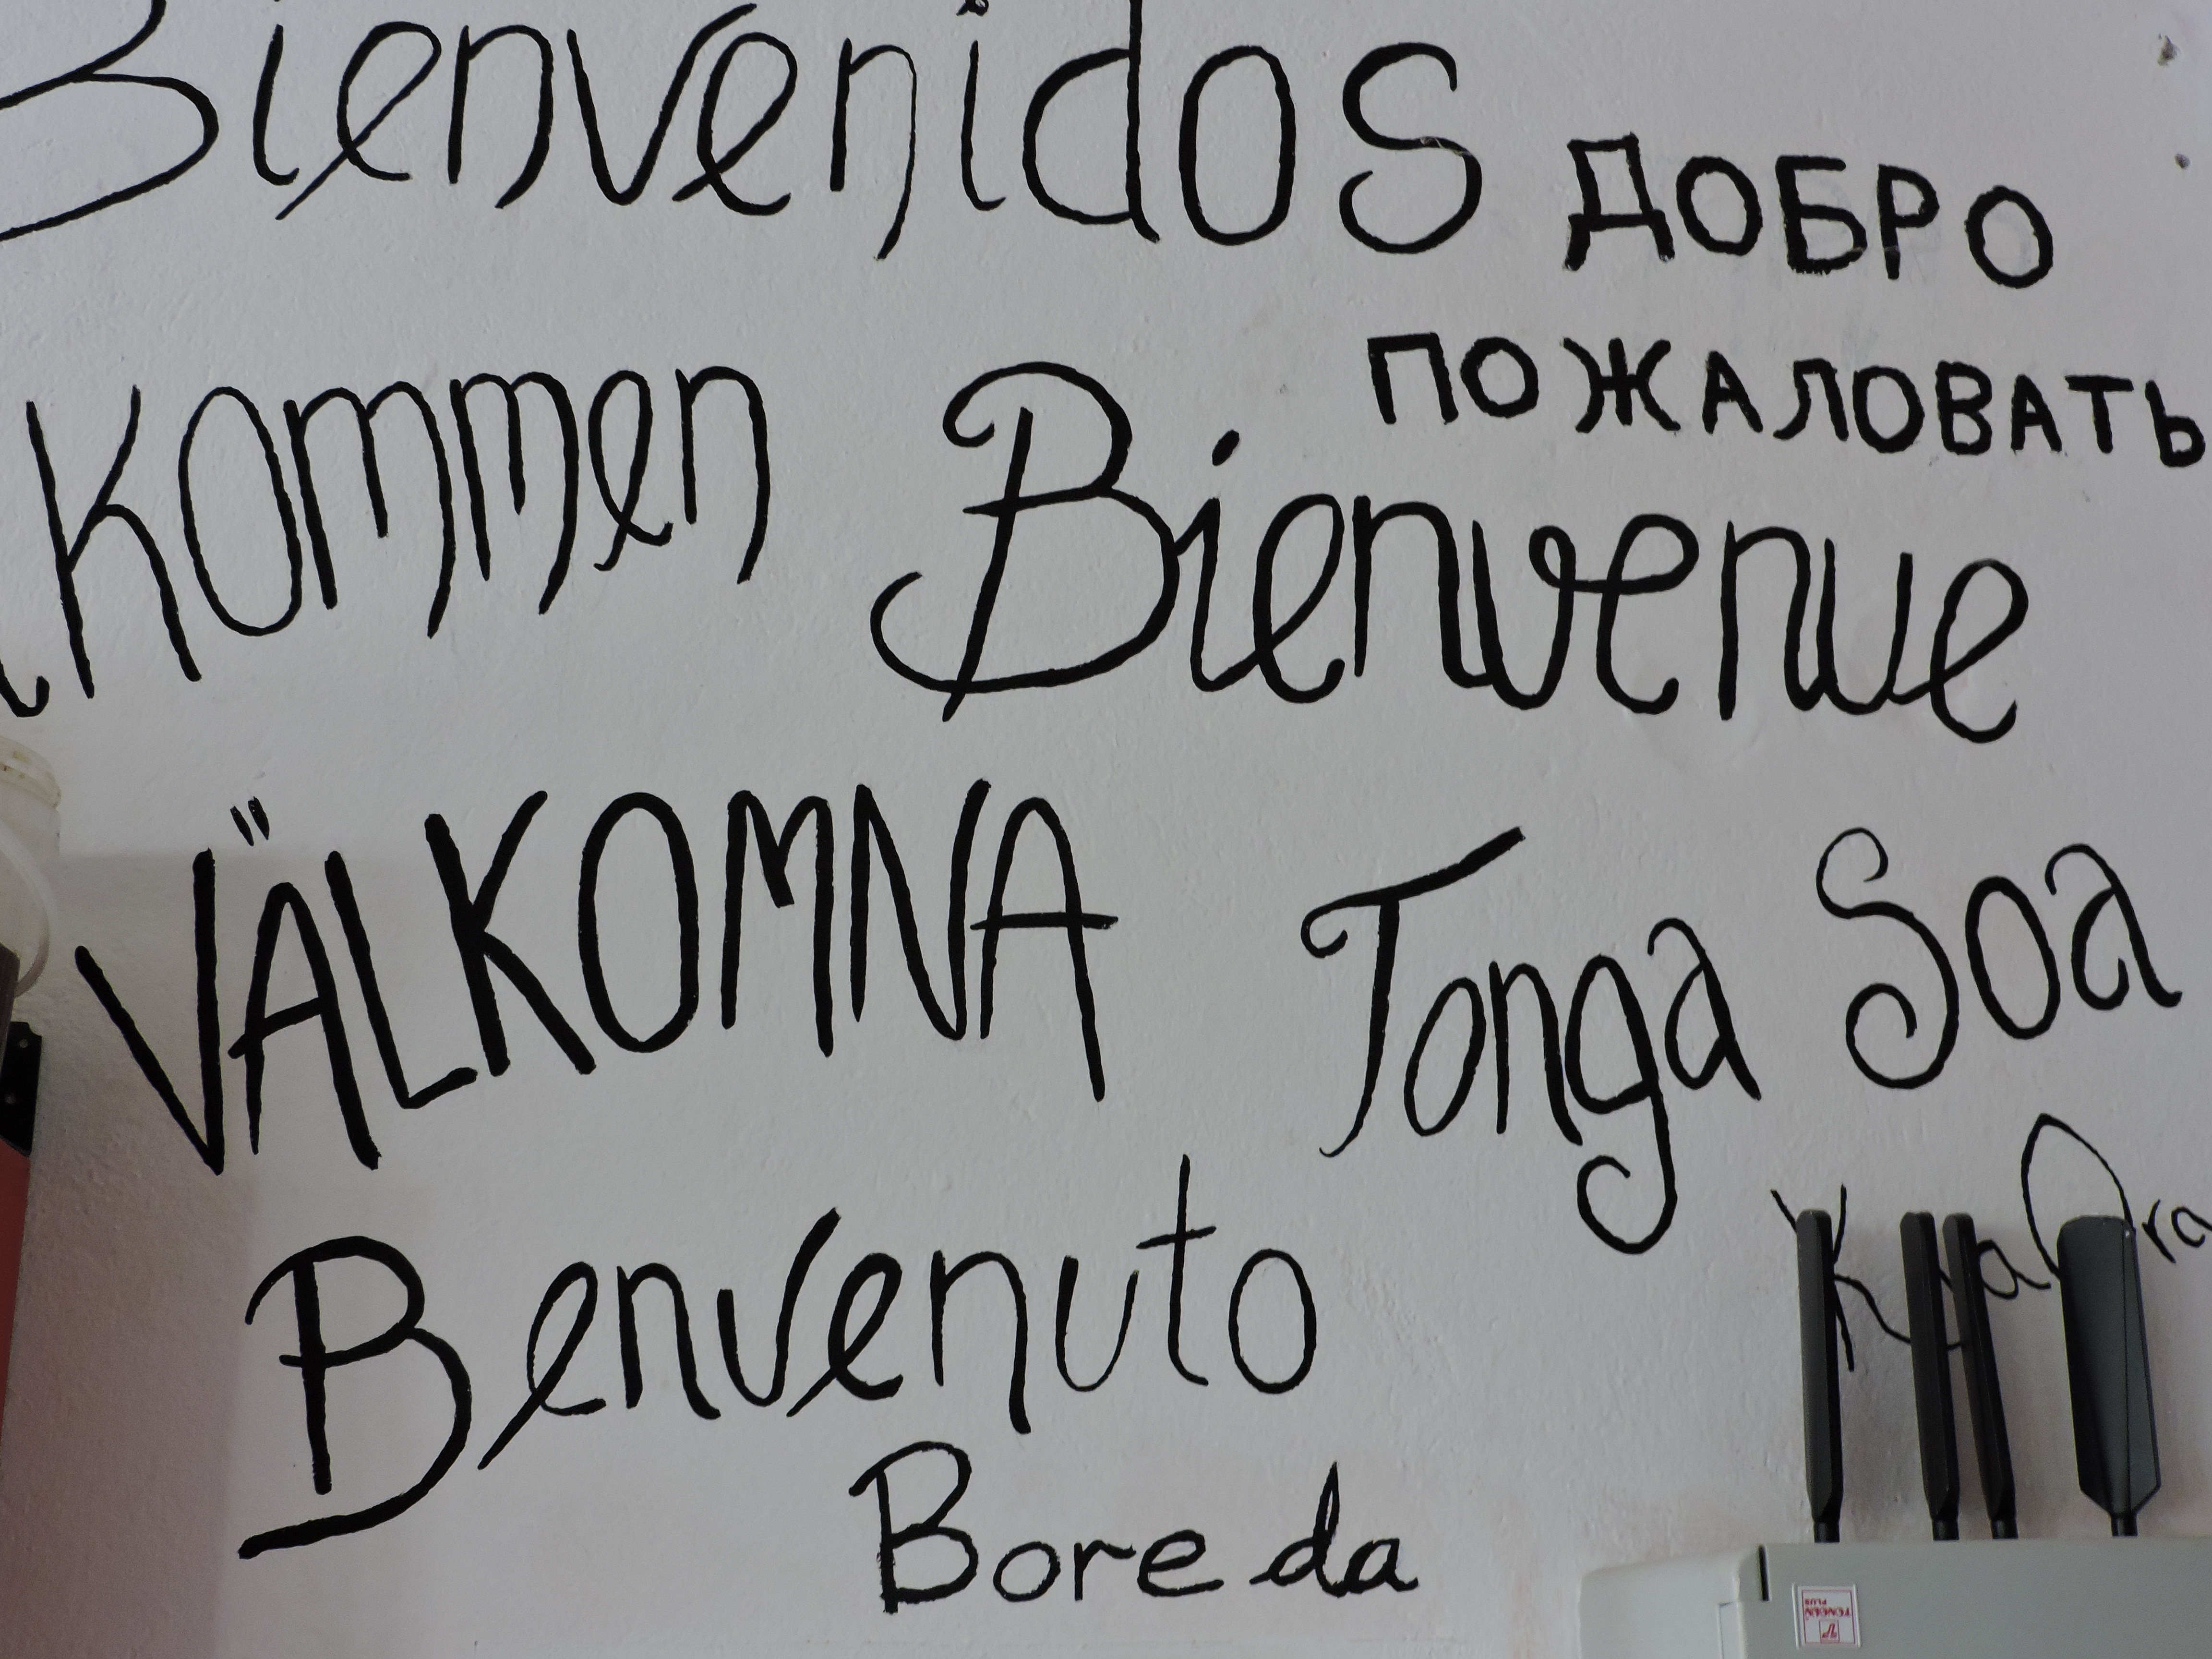 Bienvenidos
ДОБРО
ПОЖАЛОВАТЬ
kommen
Bienvenue
VÄLKOMNA
Tonga Soa
Benvenuto
Bore da